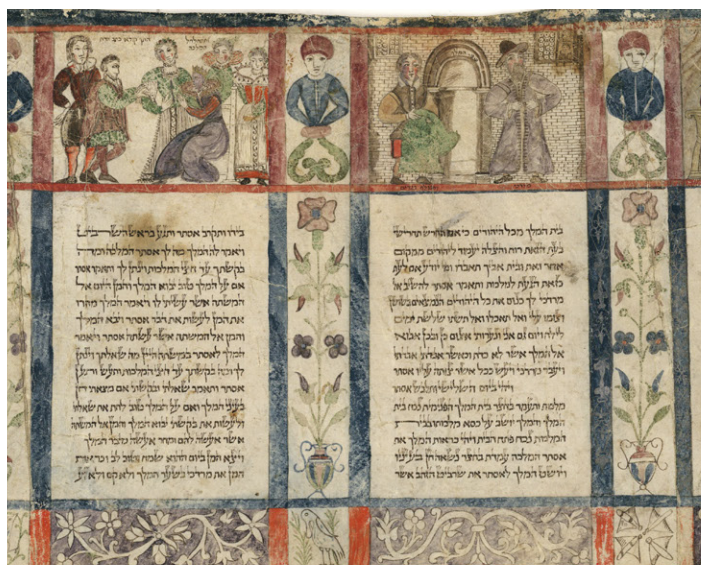 בית המלך מכל היהודים כי אם החרש תחרישי
בעת הזאת רוח והצלה יעמוד ליהודים ממקום
אחר ואת ובית אביך תאבדו ומי יודע אם לעת
כזאת הגעת למלכות ותאמר אסתר להשיב אל
מרדכי לך כנוס את כל היהודים הנמצאים בשושן
וצומו עלי ואל תאכלו ואל תשתו שלשת ימים
לילה ויום גם אני ונערתי אצום כן ובכן אבוא
אל המלך אשר לא כדת וכאשר אבדתי אבדתי
ויעבר מרדכי ויעש ככל אשר צותה עליו אסתר
ויהי ביום השלישי ותלבש אסתר
מלכות ותעמד בחצר בית המלך הפנימית נכח בית
המלך והמלך יושב על כסא מלכותו בבית
המלכות נכח פתח הבית ויהי כראות המלך את
אסתר המלכה עמדת בחצר נשאה חן בעיניו
ויושט המלך לאסתר את שרביט הזהב אשר
בידו ותקרב אסתר ותגע בראש השרביט
ויאמר לה המלך מה לך אסתר המלכה ומה
בקשתך עד חצי המלכות וינתן לך ותאמר אסתר
אם על המלך טוב יבוא המלך והמן היום אל
המשתה אשר עשיתי לו ויאמר המלך מהרו
את המן לעשות את דבר אסתר ויבא המלך
והמן אל המשתה אשר עשתה אסתר ויאמר
המלך לאסתר במשתה היין מה שאלתך וינתן
לך ומה בקשתך עד חצי המלכות ותעש ותען
אסתר ותאמר שאלתי ובקשתי אם מצאתי חן
בעיני המלך ואם על המלך טוב לתת את שאלתי
ולעשות את בקשתי יבוא המלך והמן אל המשתה
אשר אעשה להם ומחר אעשה כדבר המלך
ויצא המן ביום ההוא שמח וטוב לב וכראות
המן את מרדכי בשער המלך ולא קם ולא זע